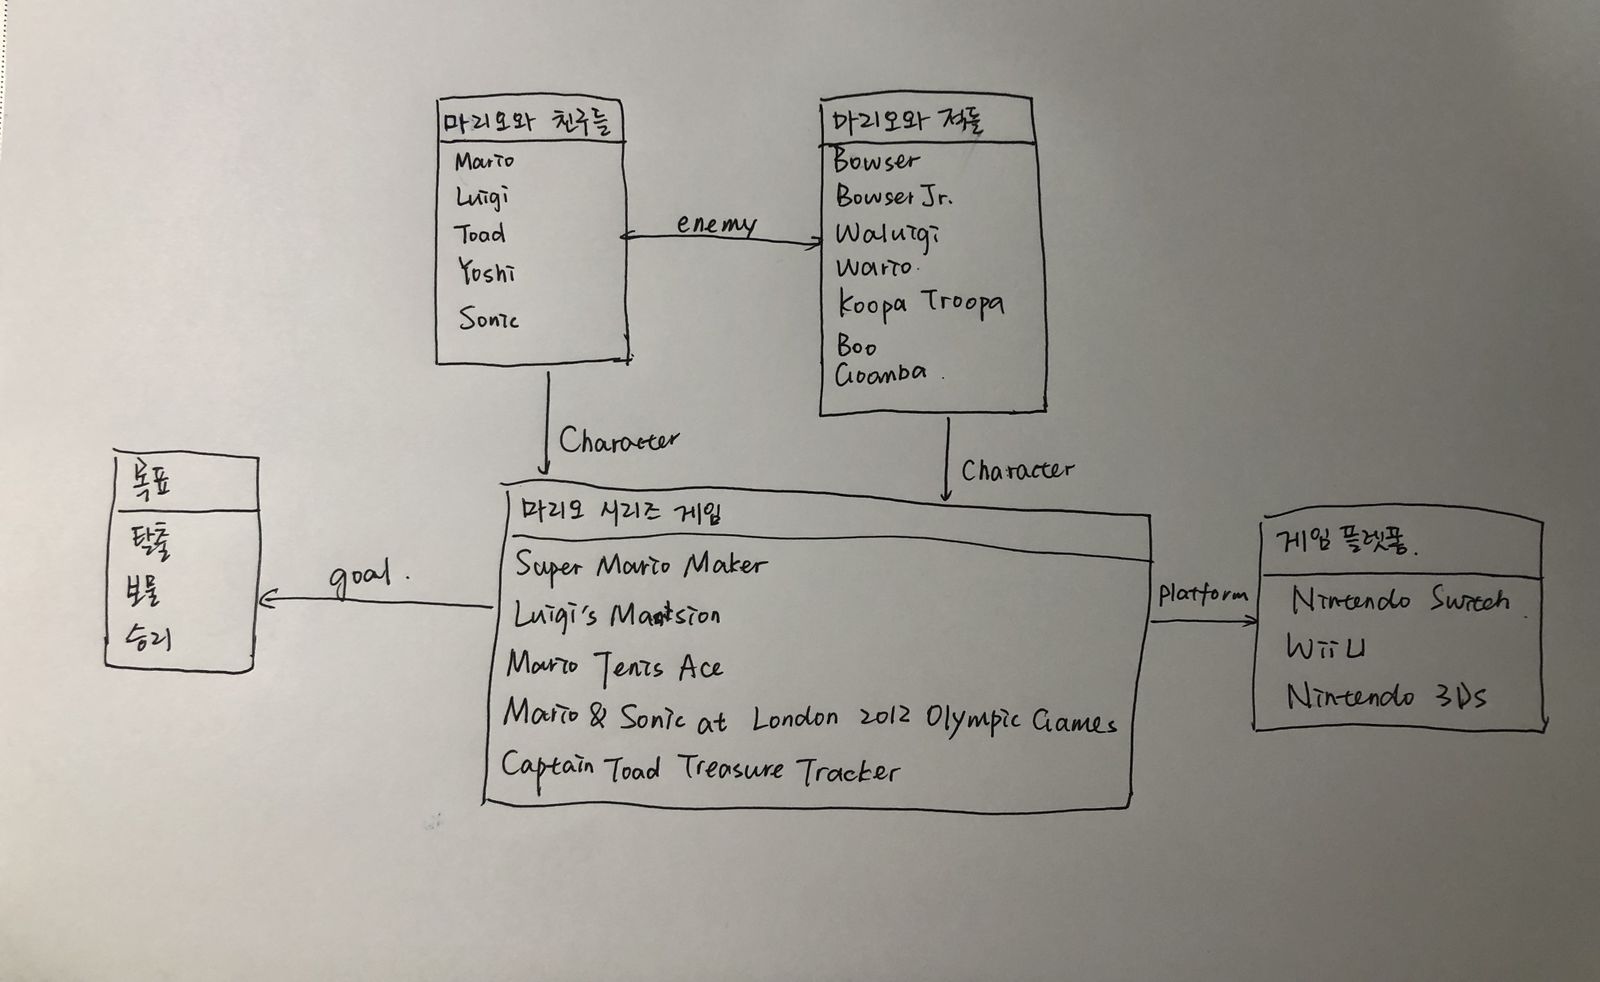 마리오와 친구들
Mario
Luigi
Toad
Yoshi
Sonic
enemy
마리오와 적들
Bowser
Bowser Jr.
Waluigi
Wario.
Koopa Troopa
Boo
Goomba.
Character
Character
목표
탈출
보물
승리
goal.
마리오 시리즈 게임
Super Mario Maker
Luigi's Mansion
Mario Tenis Ace
Mario & Sonic at London 2012 Olympic Games
Captain Toad Treasure Tracker
Platform
게임 플렛폼.
Nintendo Switch.
Wii U
Nintendo 3Ds